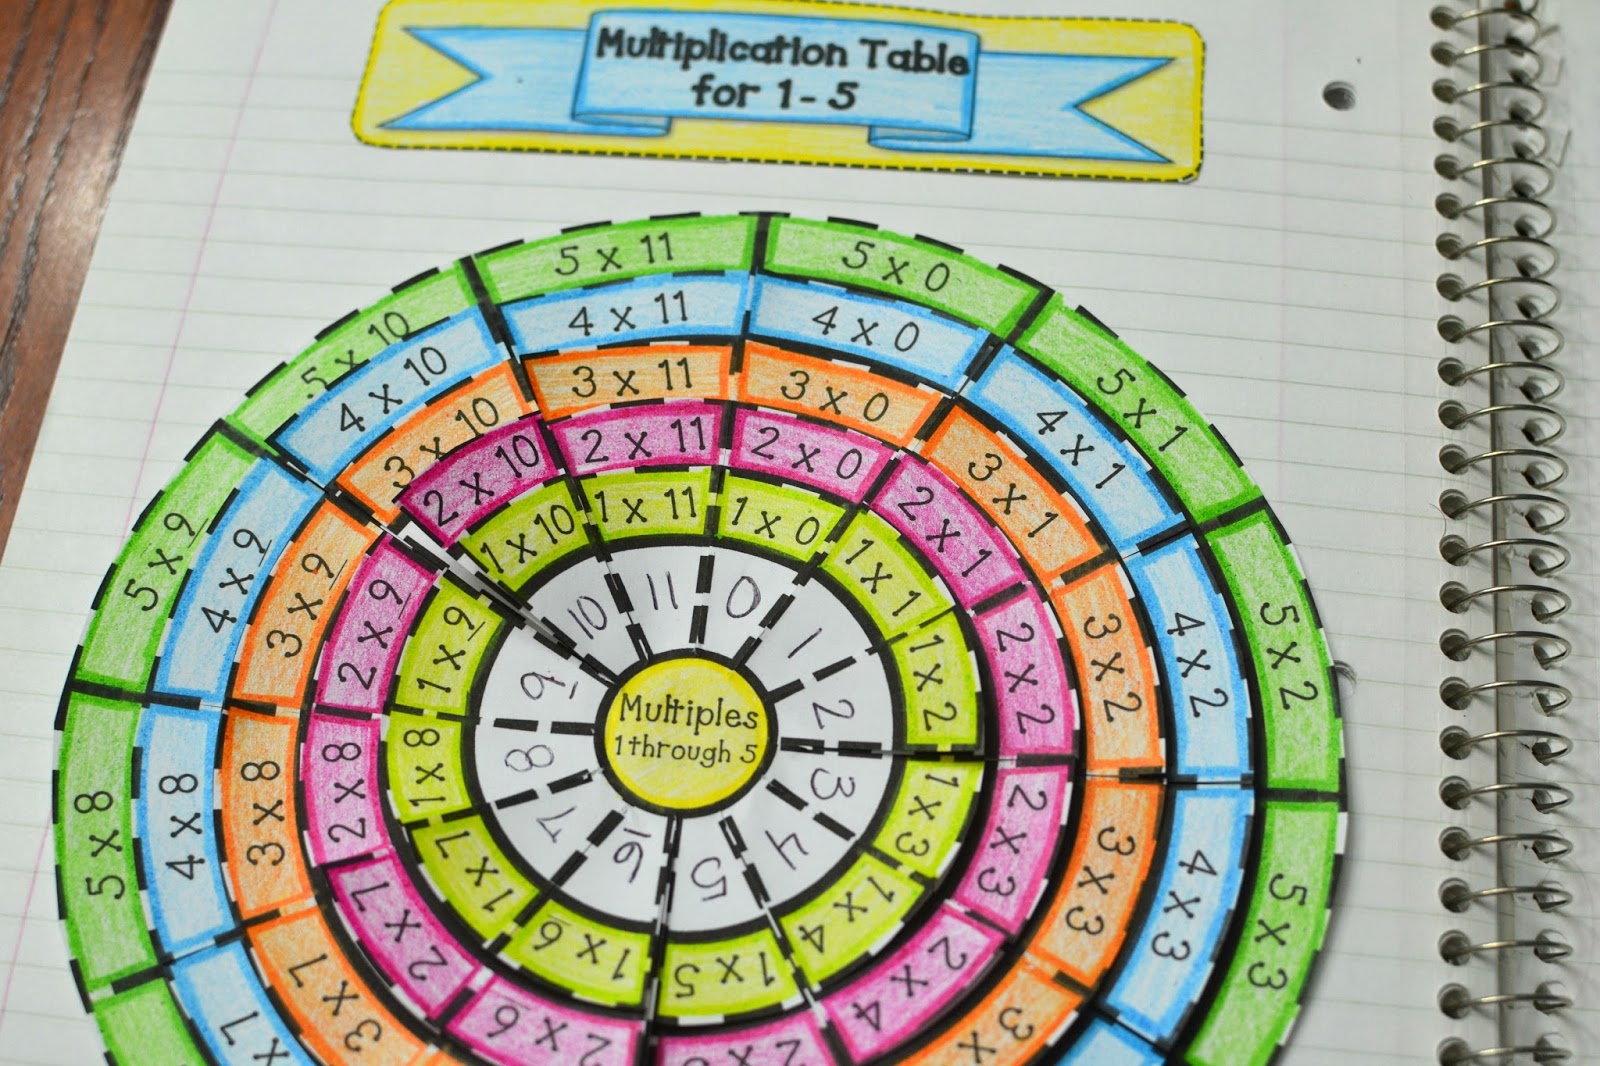 Multiplication Table
for 1 - 5
5 x 11
5 x 0
5 x 1
5 x 2
5 x 3
5 x 8
5 x 9
5 x 10
4 x 11
4 x 0
4 x 1
4 x 2
4 x 3
x 7
4 x 8
4 x 9
4 x 10
3 x 11
3 x 0
3 x 1
3 x 2
3 x 3
3 x
3 x 7
3 x 8
3 x 9
3 x 10
2 x 11
2 x 0
2 x 1
2 x 2
2 x 3
2 x 4
2 x 5
2 x 6
2 x 7
2 x 8
2 x 9
2 x 10
1 x 11
1 x 0
1 x 1
1 x 2
1 x 3
1 x 4
1 x 5
1 x 6
1 x 7
1 x 8
1 x 9
1 x 10
11
0
1
2
3
4
5
6
7
8
9
10
Multiples
1 through 5